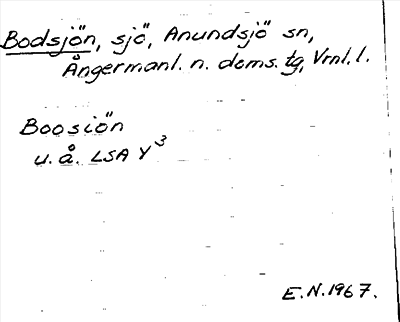 Bodsjön, sjö, Anundsjö sn,
Ångermanl. n. doms. tg, Vrnl. l.
Boosiön
u. å. LSA Y3
E.N. 1967.